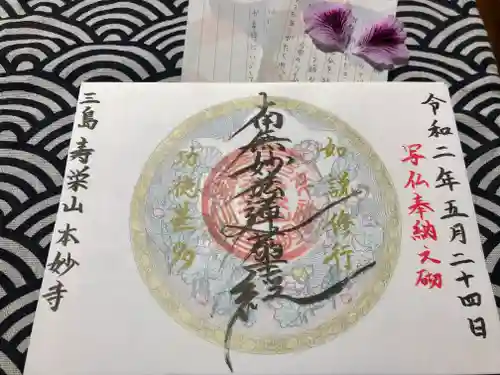 令和二年五月二十四日
写仏奉納入砌
如説修行
南無妙法蓮華経
功徳甚多
三島 寿栄山本妙寺